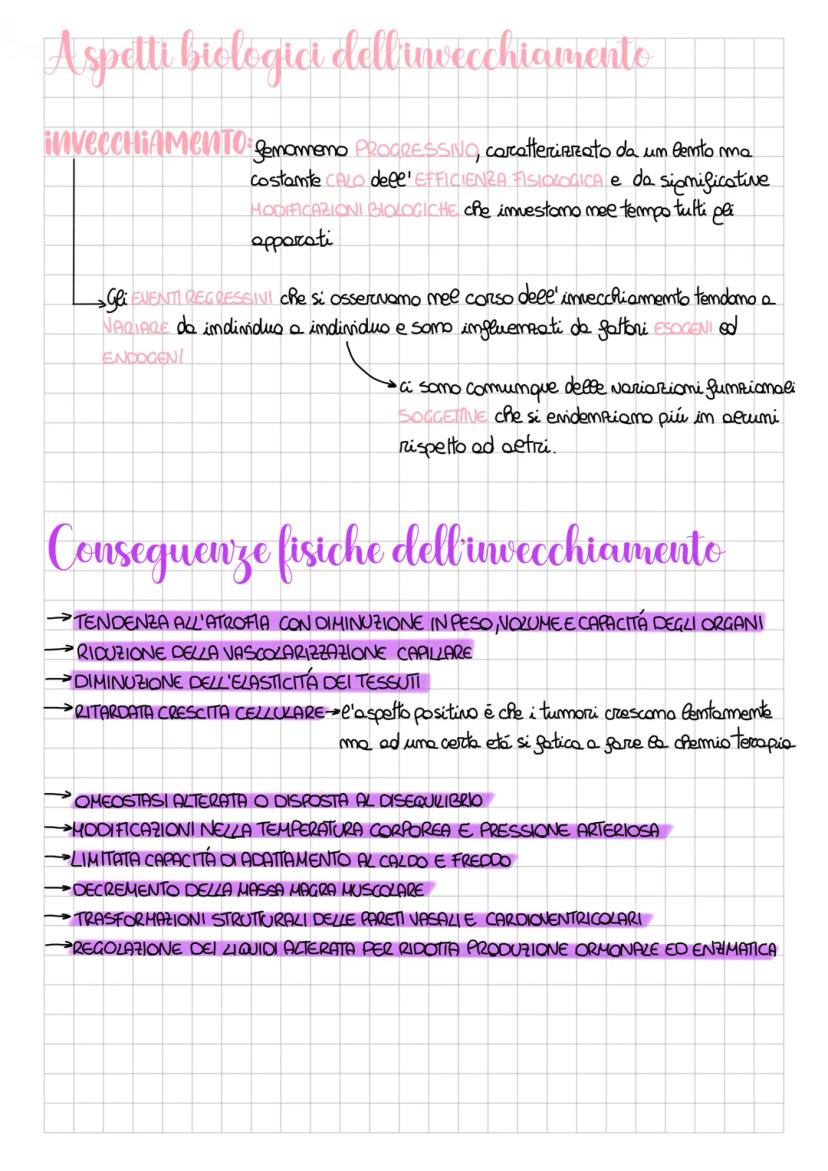 Aspetti biologici dell'invecchiamento
INVECCHIAMENTO: fenomeno PROGRESSIVO, caratterizzato da un lento ma
costante CALO dell'EFFICIENZA FISIOLOGICA e da significative
MODIFICAZIONI BIOLOGICHE che investono nel tempo tutti gli
apparati
Gli EVENTI REGRESSIVI che si osservano nel corso dell'invecchiamento tendono a
VARIARE da individuo a individuo e sono influenzati da fattori ESOGENI ed
ENDOGENI
ci sono comunque delle variazioni funzionali
SOGGETTIVE che si evidenziano più in alcuni
rispetto ad altri.
Conseguenze fisiche dell'invecchiamento
→ TENDENZA ALL'ATROFIA CON DIMINUZIONE IN PESO, VOLUME E CAPACITÁ DEGLI ORGANI
→ RIDUZIONE DELLA VASCOLARIZZAZIONE CAPILLARE
→ DIMINUZIONE DELL'ELASTICITÁ DEI TESSUTI
→ RITARDATA CRESCITA CELLULARE → l'aspetto positivo é che i tumori crescono lentamente
ma ad una certa etá si fatica a fare la chemio terapia
→ OMEOSTASI ALTERATA O DISPOSTA AL DISEQUILIBRIO
→ MODIFICAZIONI NELLA TEMPERATURA CORPOREA E PRESSIONE ARTERIOSA
→ LIMITATA CAPACITÁ DI ADATTAMENTO AL CALDO E FREDDO
→ DECREMENTO DELLA MASSA MAGRA MUSCOLARE
→ TRASFORMAZIONI STRUTTURALI DELLE PARETI VASALI E CARDIOVENTRICOLARI
→ REGOLAZIONE DEI LIQUIDI ALTERATA PER RIDOTTA PRODUZIONE ORMONALE ED ENZIMATICA